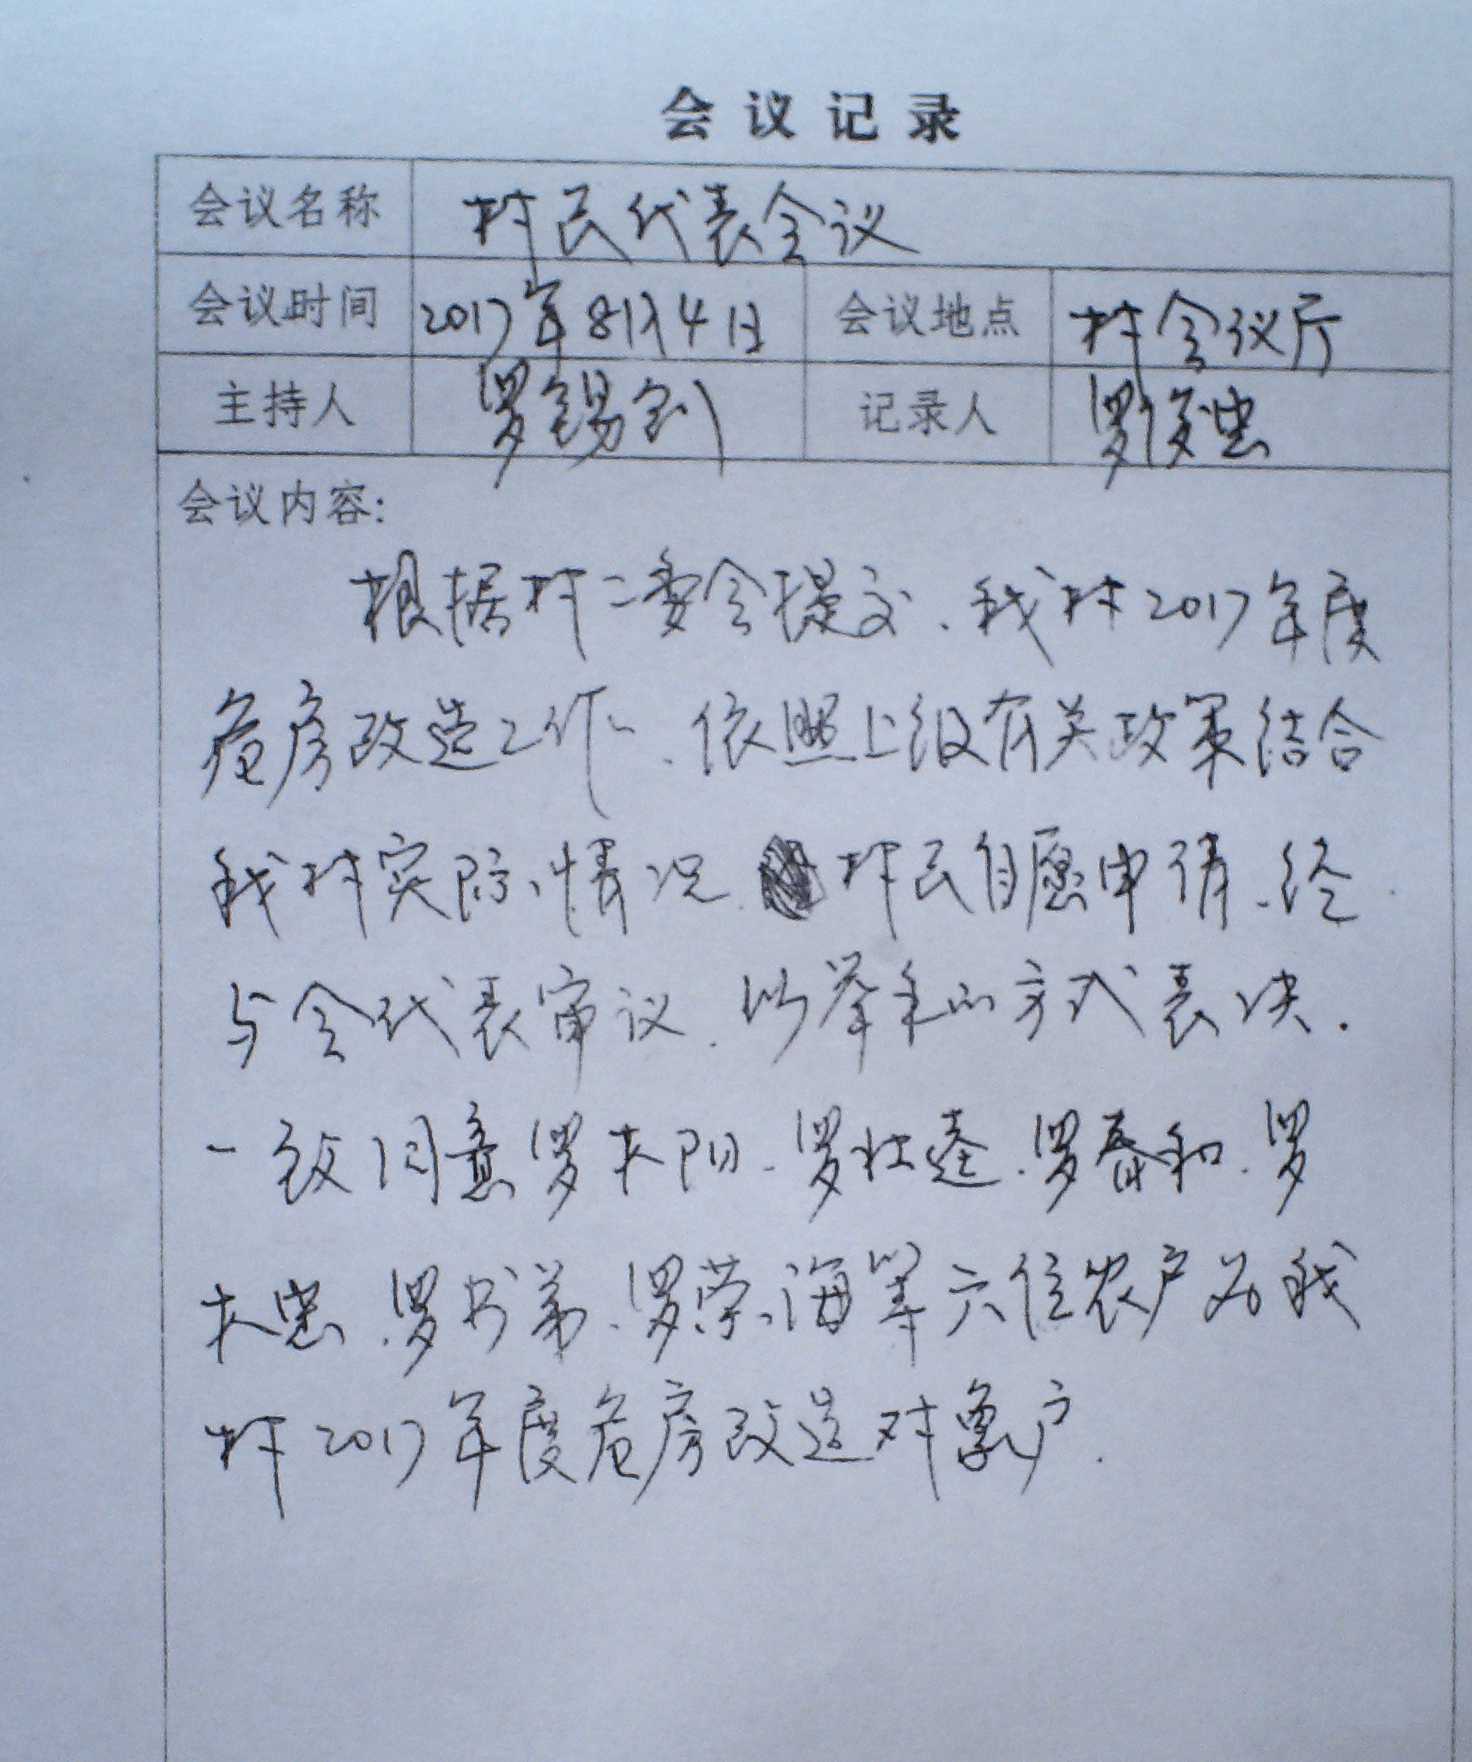 会议记录
会议名称 村民代表会议
会议时间 2017年8月4日 会议地点 村会议厅
主持人 罗锡钊 记录人 罗俊忠
会议内容:
根据村二委会提交、我村2017年度
危房改造工作、依照上级有关政策结合
我村实际情况、村民自愿申请、经
与会代表审议、以举手的方式表决.
一致同意罗木阳、罗壮逵、罗春和、罗
木忠、罗书弟、罗荣海等六位农户为我
村2017年度危房改造对象户.